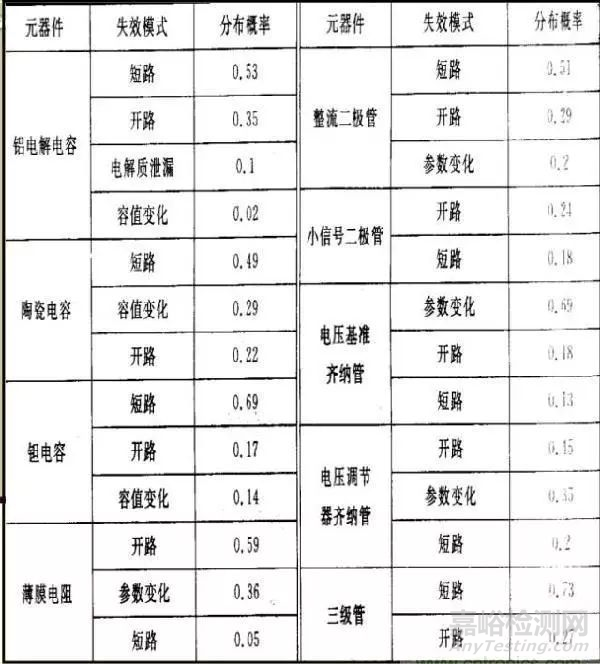 元器件 失效模式 分布概率
铝电解电容
短路 0.53
开路 0.35
电解质泄漏 0.1
容值变化 0.02
陶瓷电容
短路 0.49
容值变化 0.29
开路 0.22
钽电容
短路 0.69
开路 0.17
容值变化 0.14
薄膜电阻
开路 0.59
参数变化 0.36
短路 0.05
元器件 失效模式 分布概率
整流二极管
短路 0.51
开路 0.29
参数变化 0.2
小信号二极管
开路 0.24
短路 0.18
电压基准
齐纳管
参数变化 0.69
开路 0.18
短路 0.13
电压调节
器齐纳管
开路 0.45
参数变化 0.35
短路 0.2
三级管
短路 0.73
开路 0.27
嘉峪检测网
AnyTesting.com